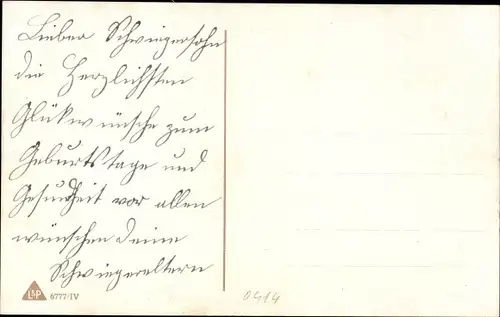 Lieber Schwiegersohn
die Herzlichsten
Glückwünsche zum
Geburtstage und
Gesundheit vor allen
wünschen deine
Schwiegereltern
L&P 6777/IV
0414